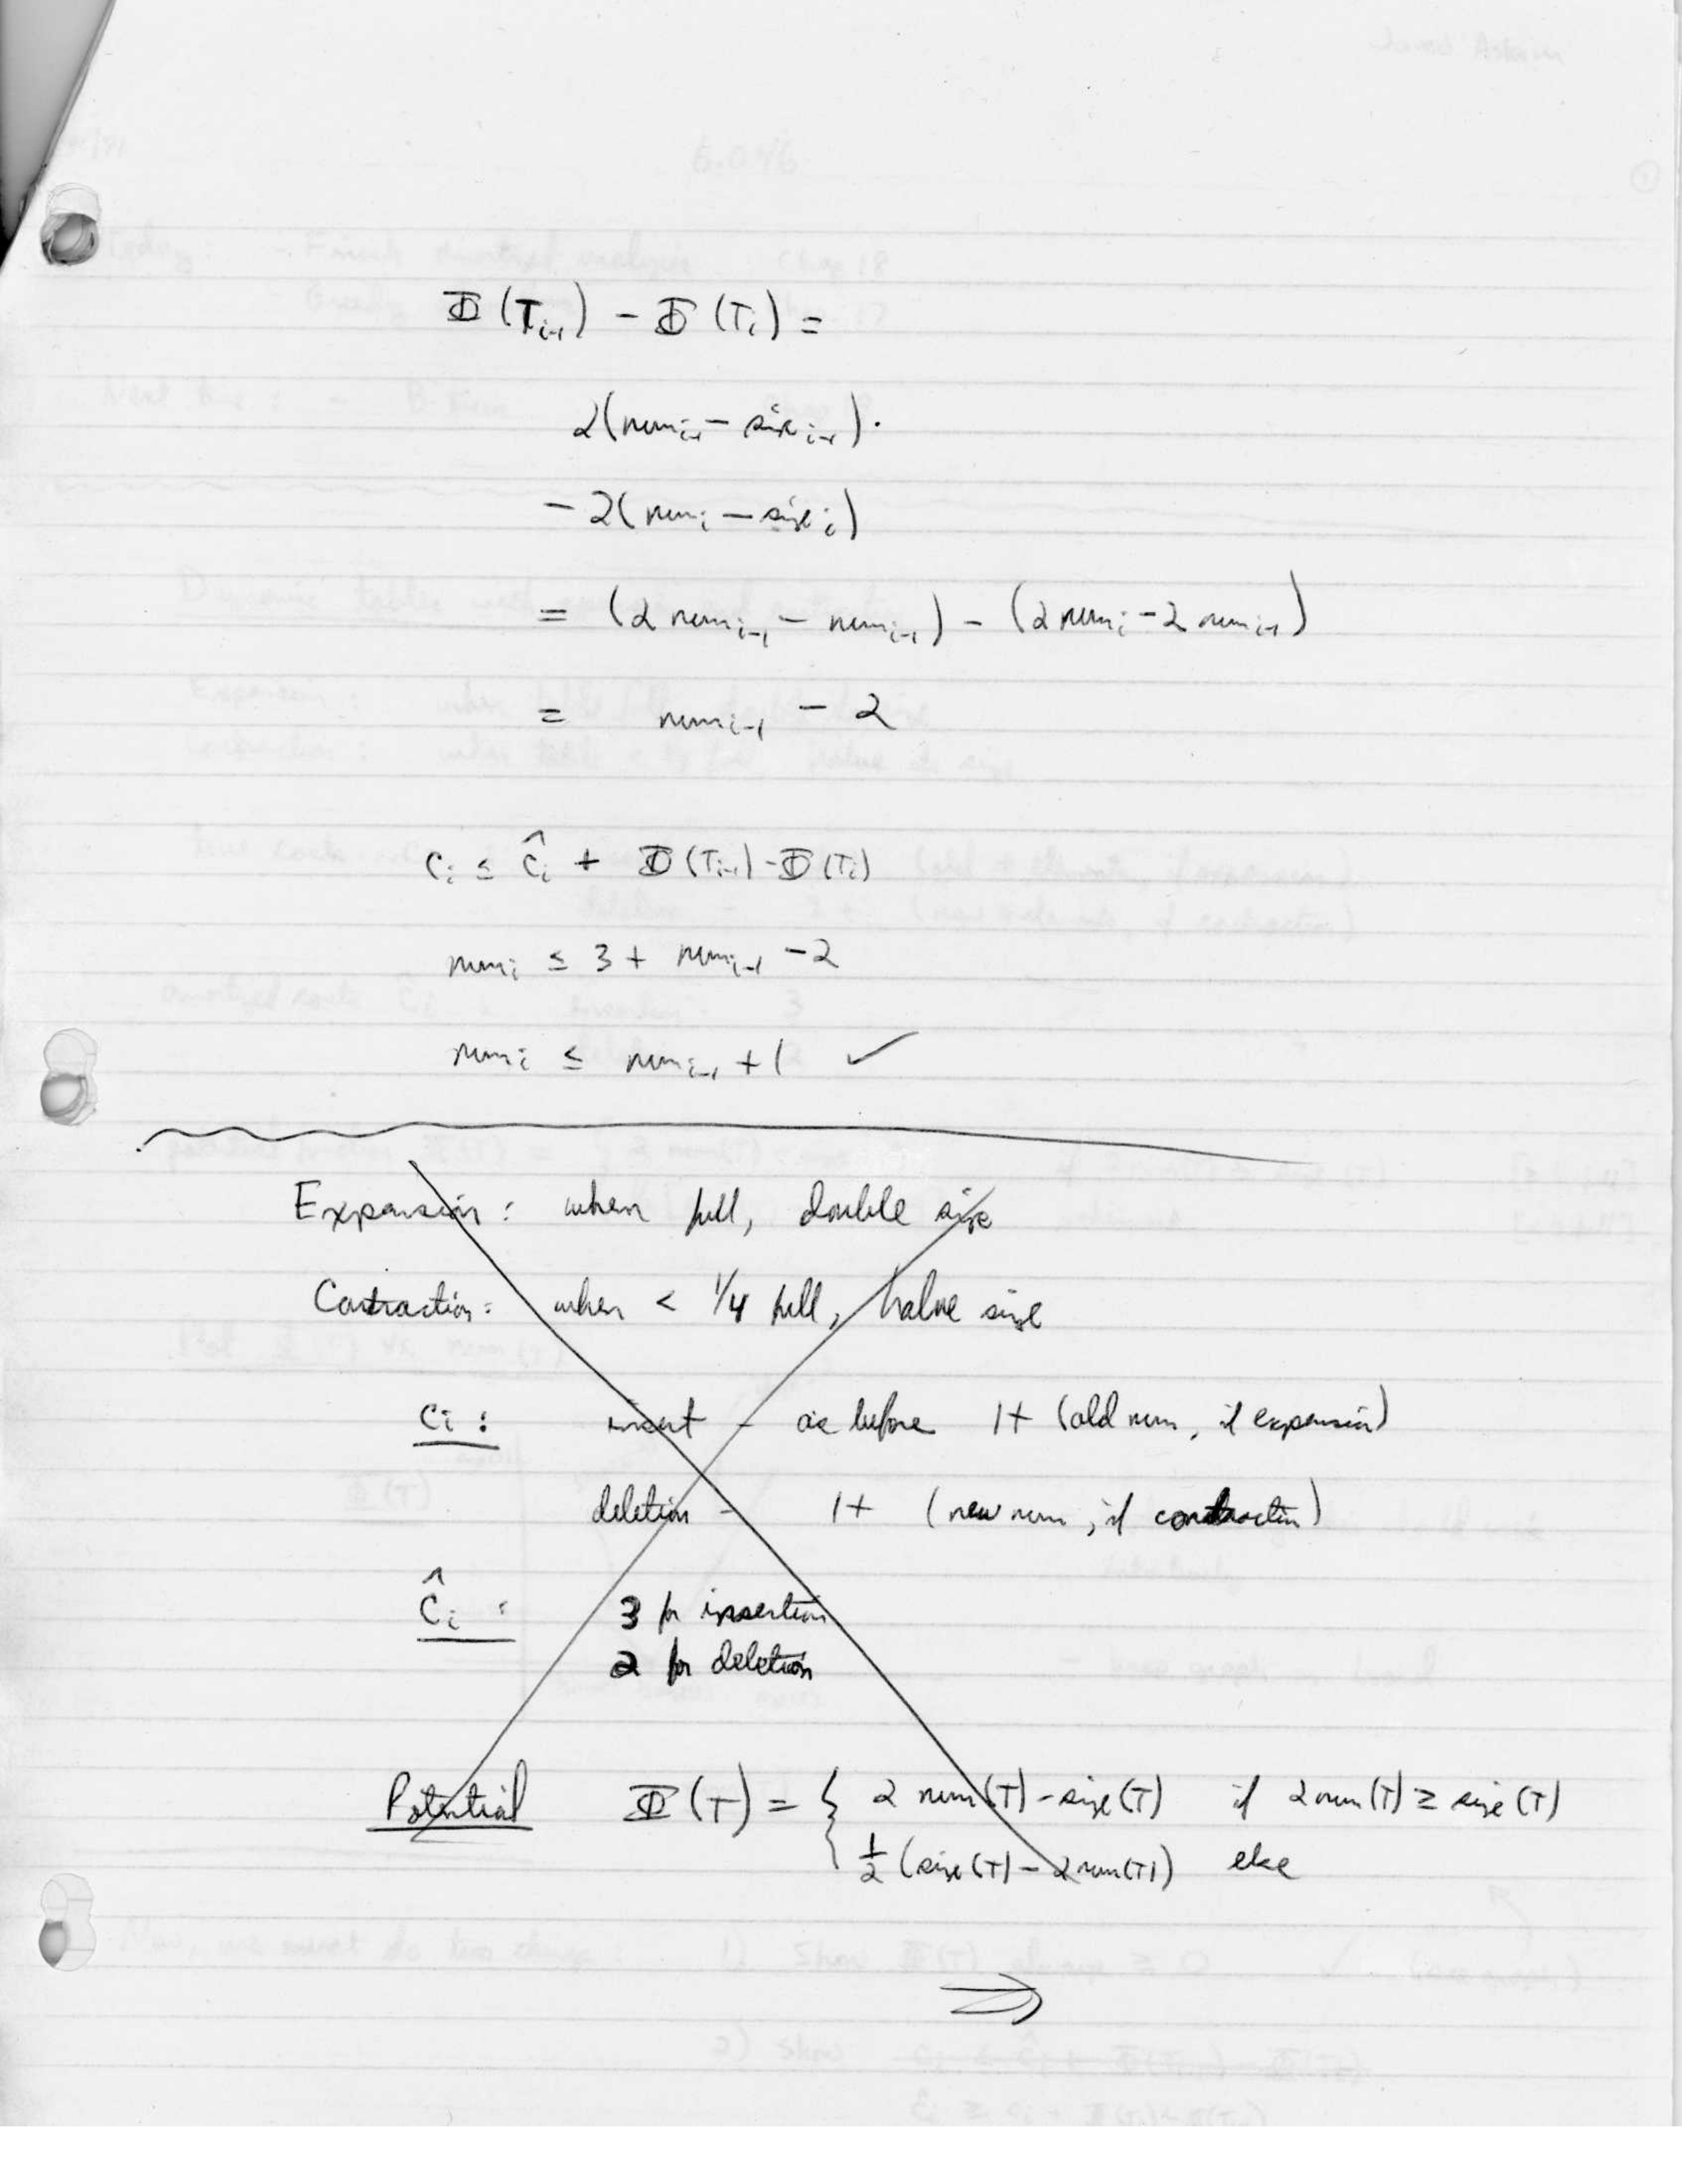 Φ(Tᵢ₋₁) − Φ(Tᵢ) =
2(numᵢ₋₁ − sizeᵢ₋₁)·
− 2(numᵢ − sizeᵢ)
= (2 numᵢ₋₁ − numᵢ₋₁) − (2 numᵢ − 2 numᵢ₋₁)
= numᵢ₋₁ − 2
cᵢ ≤ ĉᵢ + Φ(Tᵢ₋₁) − Φ(Tᵢ)
numᵢ ≤ 3 + numᵢ₋₁ − 2
numᵢ ≤ numᵢ₋₁ + 1 ✓
Expansion: when full, double size
Contraction: when < 1/4 full, halve size
cᵢ: insert − as before 1+ (old num, if expansion)
deletion − 1+ (new num, if contraction)
ĉᵢ: 3 for insertion
2 for deletion
Potential Φ(T) = { 2 num(T) − size(T) if 2 num(T) ≥ size(T)
½ (size(T) − 2 num(T)) else
⇒